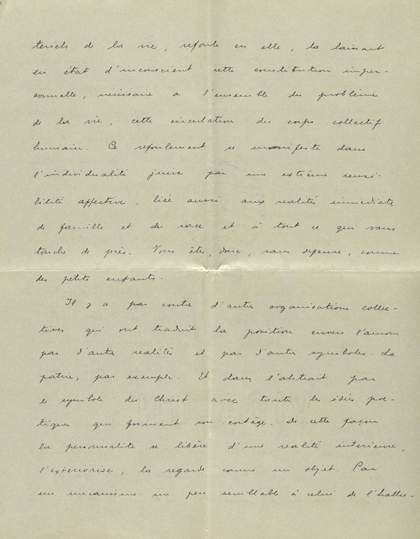 de la vie, refoule en elle, la laissant
en état d'inconscient cette constitution imper-
sonnelle, nécessaire a l'ensemble du problème
de la vie, cette du corps collectif
humain. Ce refoulement se manifeste dans
l'individualité par une extrême sensi-
bilité affective, liée aussi aux realité immediate
de famille et de race et à tout ce qui vous
touche de près. Vous êtes, donc, sans defense, comme
des petits enfants.
Il y a par contre d'autres organisations collec-
tives qui ont traduit la position envers l'amour
par d'autres realités et par d'autres symboles. La
patrie, par exemple. Et dans l'abstrait par
le symbole du Christ avec toute les idées poé-
tiques qui forment son cortège. De cette façon
la personnalité se libère d'une realité interieure,
l'exteriorise, la regarde comme un objet. Par
un mecanisme un peu semblable à celui de l'hallu-